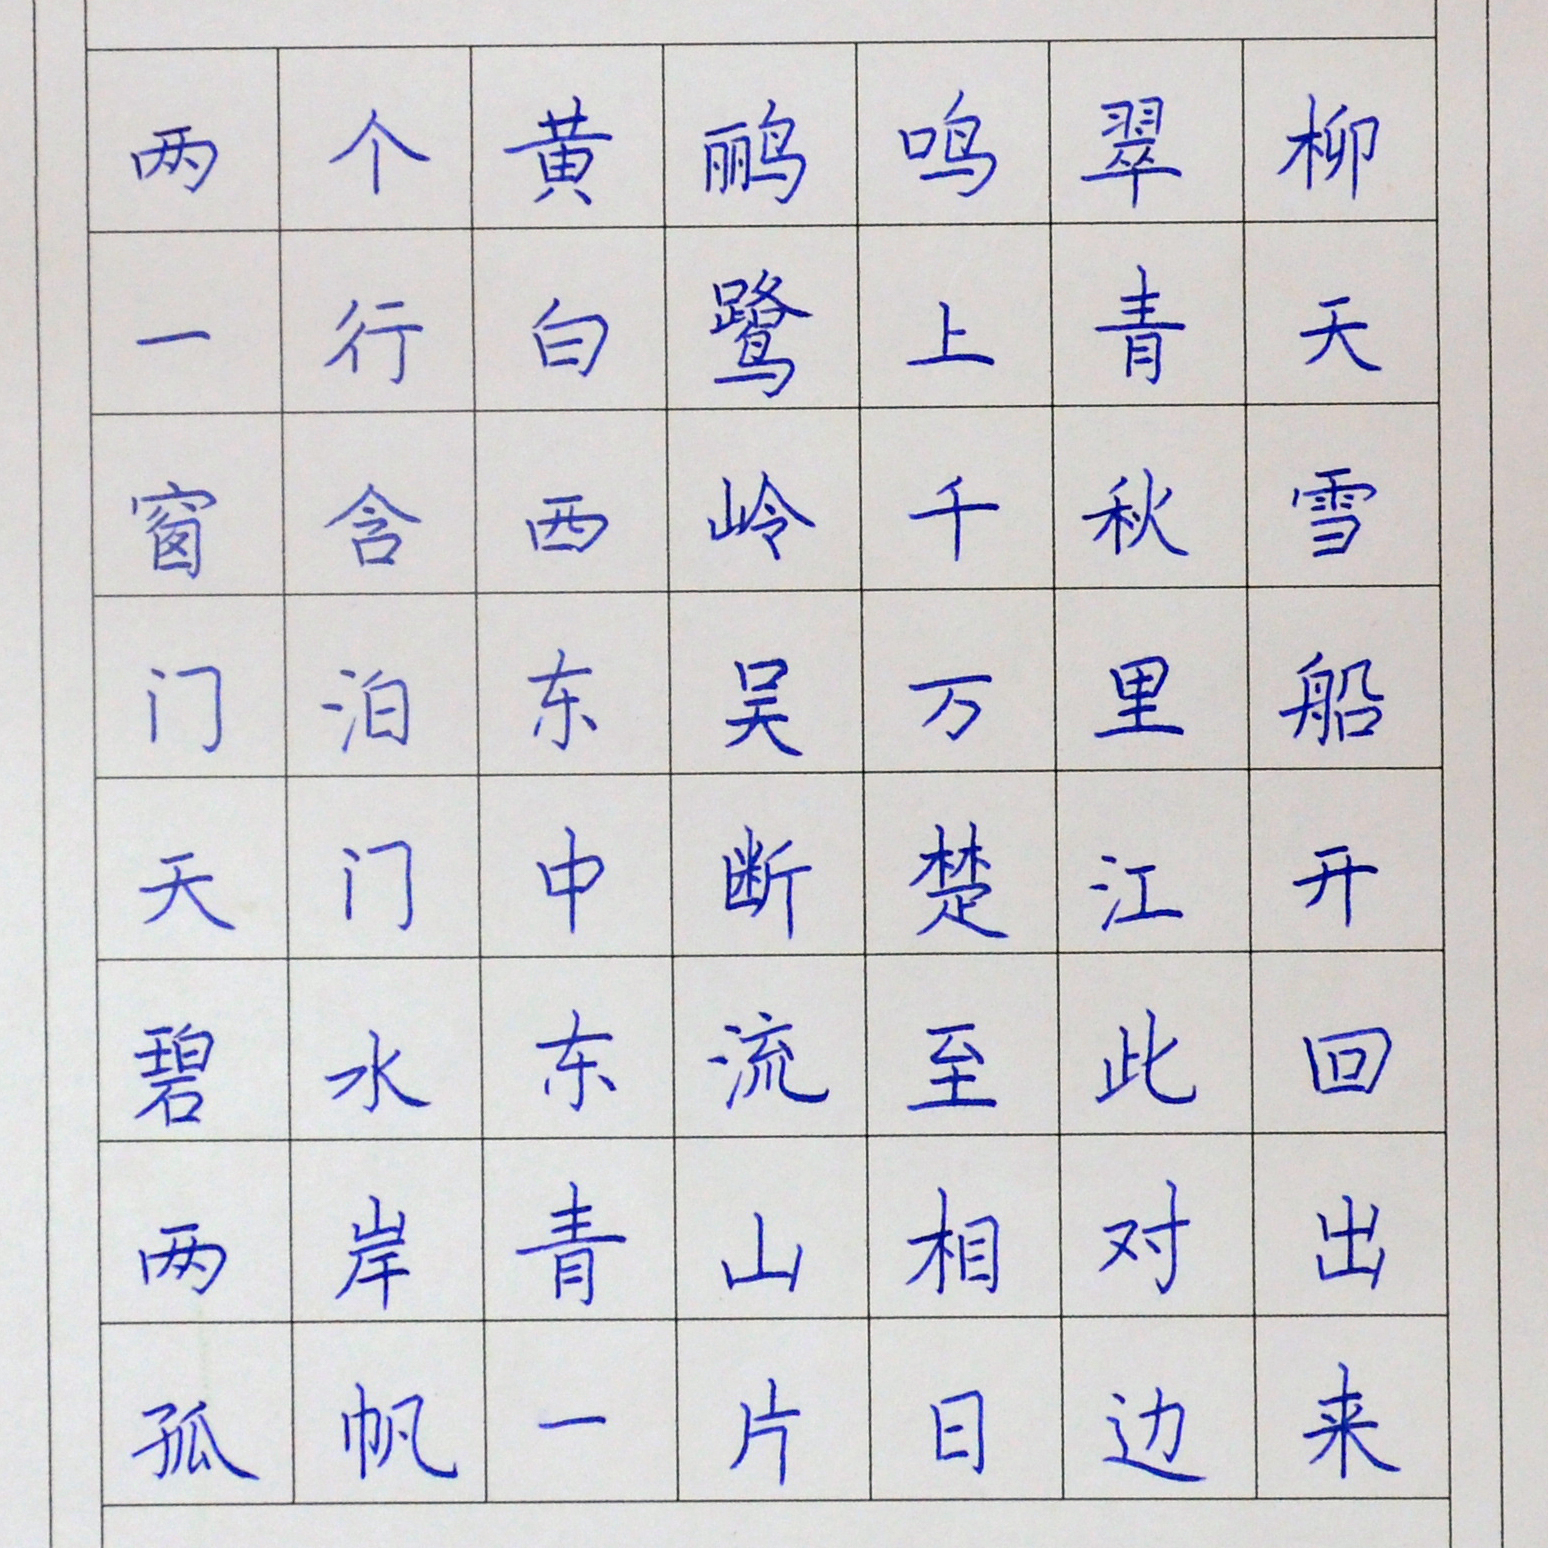 两个黄鹂鸣翠柳
一行白鹭上青天
窗含西岭千秋雪
门泊东吴万里船
天门中断楚江开
碧水东流至此回
两岸青山相对出
孤帆一片日边来